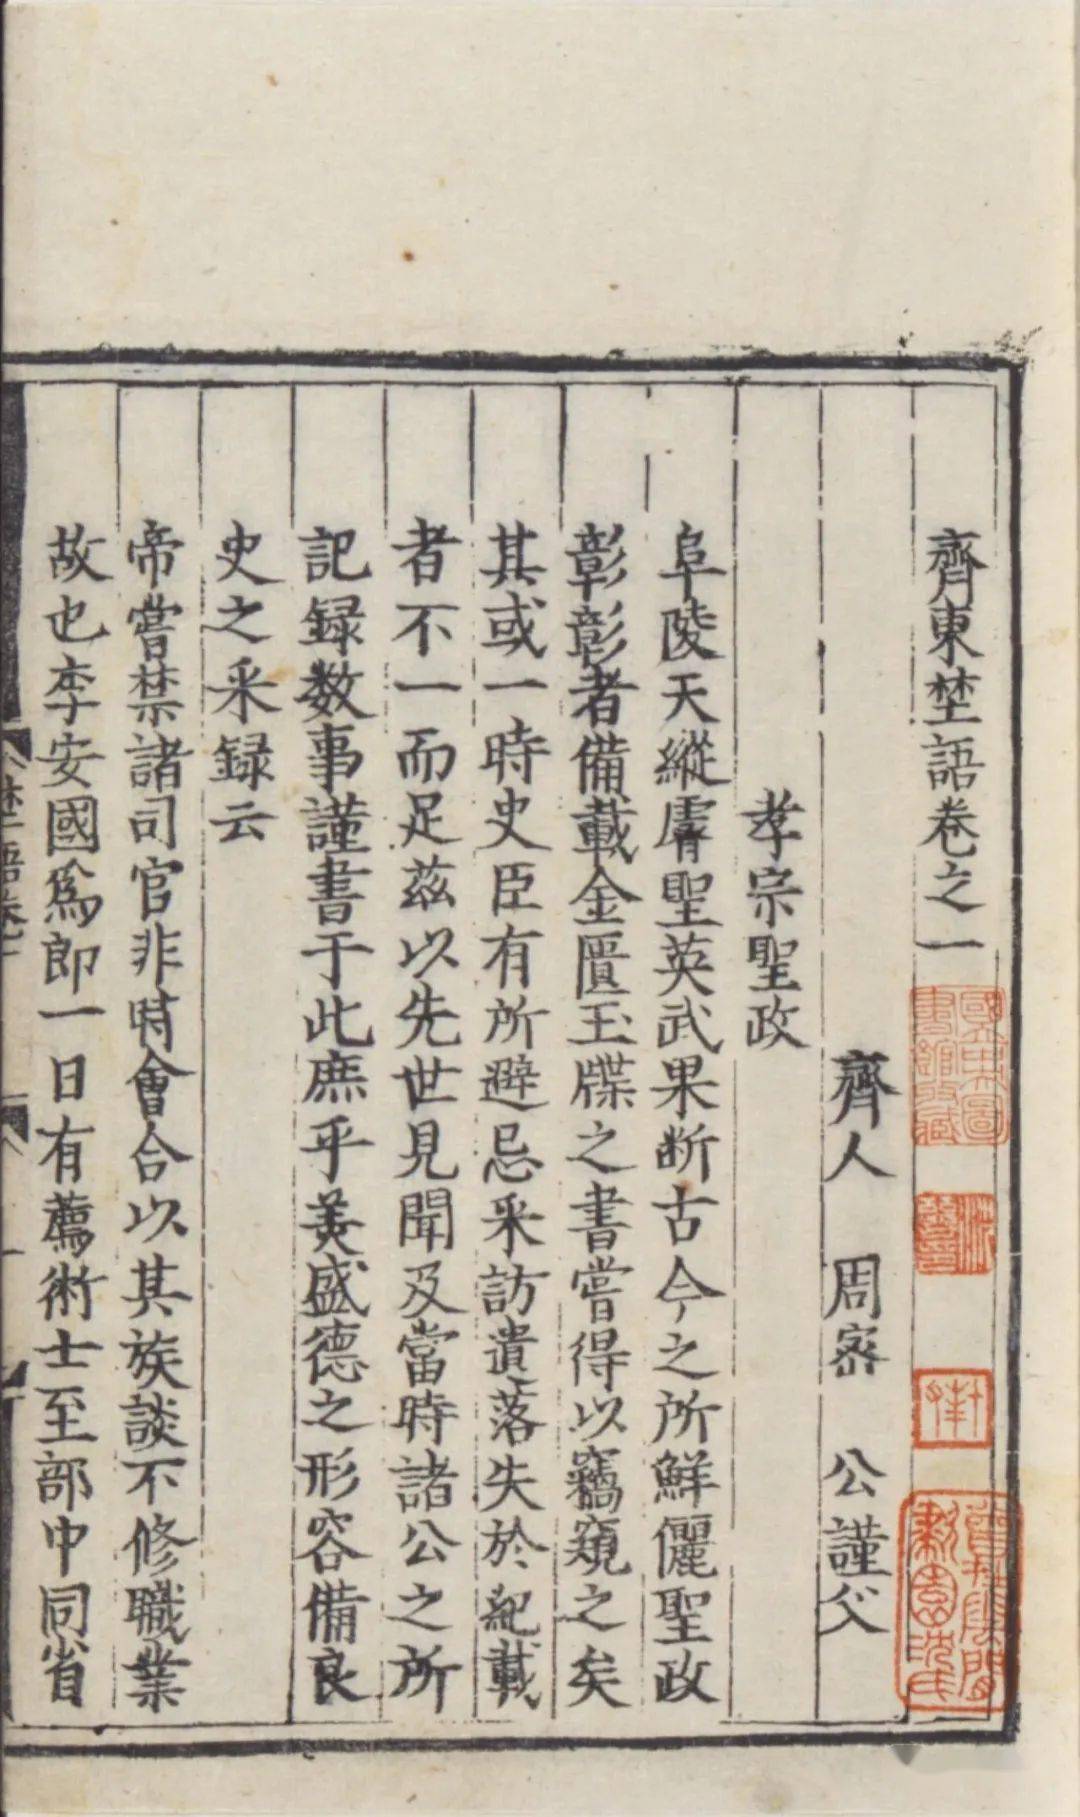 齊東埜語卷之一
齊人 周密 公謹父
孝宗聖政
阜陵天縱睿聖英武果断古今之所鮮儷聖政
彰彰者備載金匱玉牒之書嘗得以竊窺之矣
其或一時史臣有所避忌采訪遺落失於紀載
者不一而足茲以先世見聞及當時諸公之所
記録数事謹書于此庶乎美盛德之形容備良
史之采録云
帝嘗禁諸司官非時會合以其族談不修職業
故也李安國為郎一日有薦術士至部中同省
埜語卷一
國立中央圖書館收藏